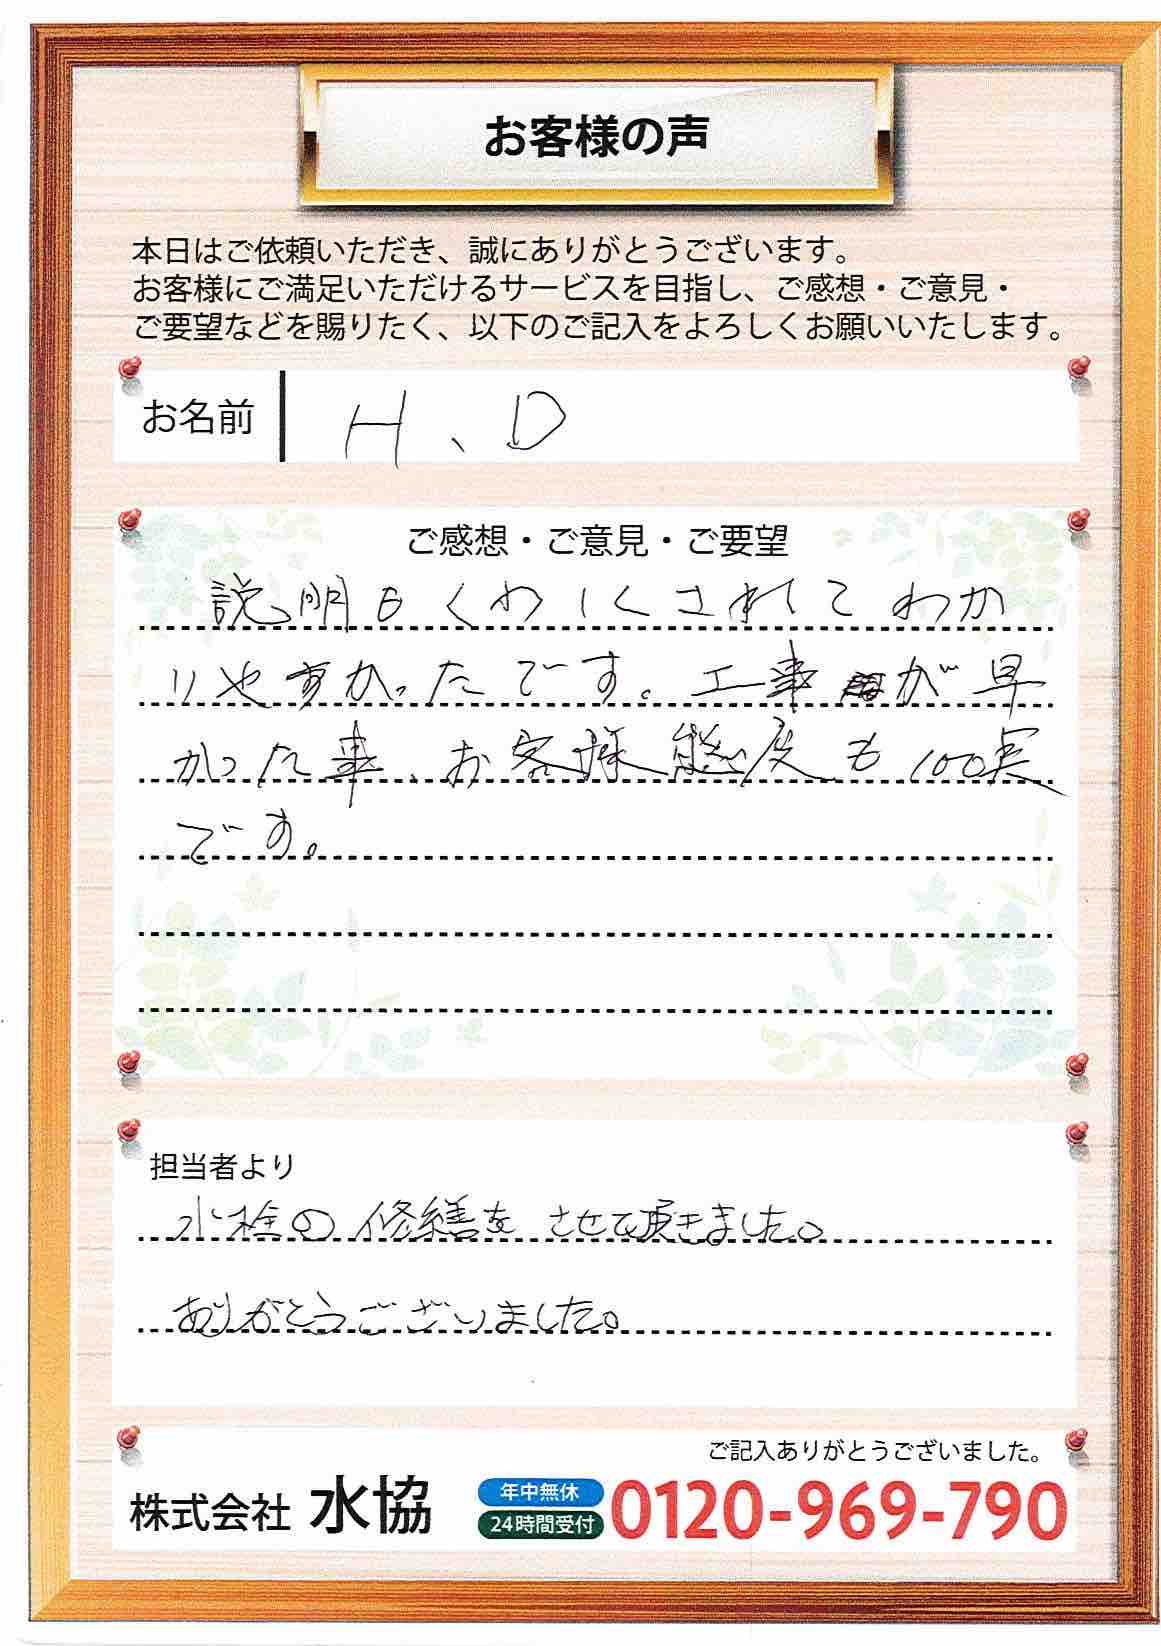 お客様の声
本日はご依頼いただき、誠にありがとうございます。
お客様にご満足いただけるサービスを目指し、ご感想・ご意見・
ご要望などを賜りたく、以下のご記入をよろしくお願いいたします。
お名前 H、D
ご感想・ご意見・ご要望
説明もくわしくされてわか
りやすかったです。工事が早
かった事、お客様態度も100実
です。
担当者より
水栓の修繕をさせて頂きました。
ありがとうございました。
ご記入ありがとうございました。
株式会社 水協 年中無休 24時間受付 0120-969-790